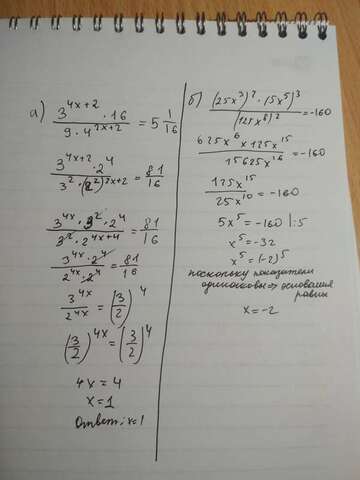 а) (3^(4x+2) · 16) / (9 · 4^(2x+2)) = 5 1/16
(3^(4x+2) · 2^4) / (3^2 · (2^2)^(2x+2)) = 81/16
(3^(4x) · 3^2 · 2^4) / (3^2 · 2^(4x+4)) = 81/16
(3^(4x) · 2^4) / (2^(4x) · 2^4) = 81/16
3^(4x) / 2^(4x) = (3/2)^4
(3/2)^(4x) = (3/2)^4
4x = 4
x = 1
Ответ: x=1
б) ((25x^3)^2 · (15x^5)^3) / (125x^8)^2 = -160
(625x^6 × 125x^15) / (15625x^16) = -160
125x^15 / 25x^10 = -160
5x^5 = -160 |:5
x^5 = -32
x^5 = (-2)^5
поскольку показатели
одинаковы => основания
равны
x = -2